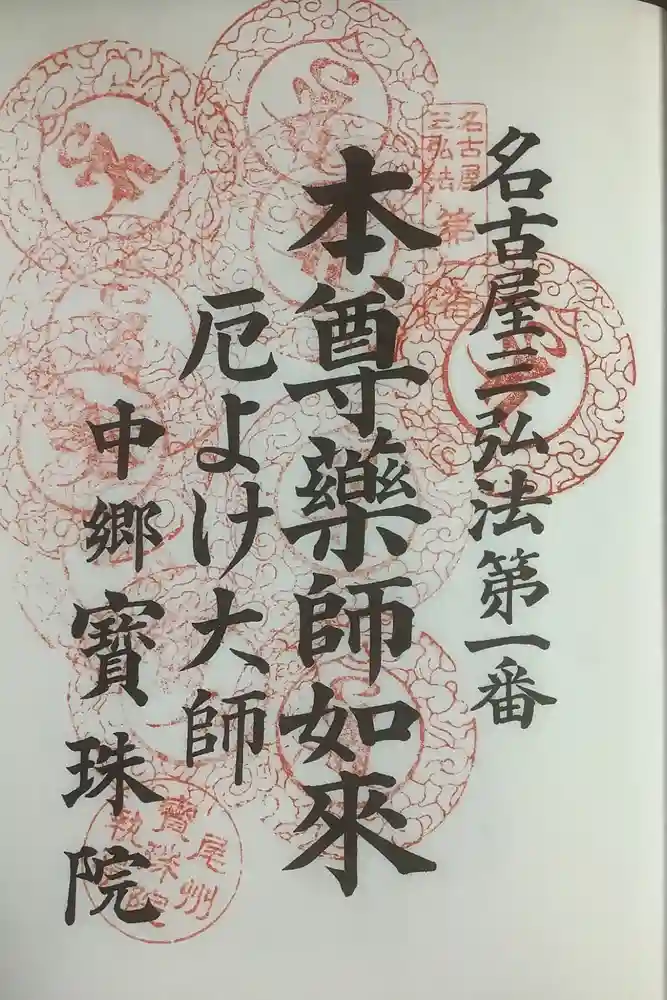 名古屋三弘法第一番
本尊藥師如來
厄よけ大師
中郷寶珠院
名古屋
三弘法
第一番
尾州
寶珠院